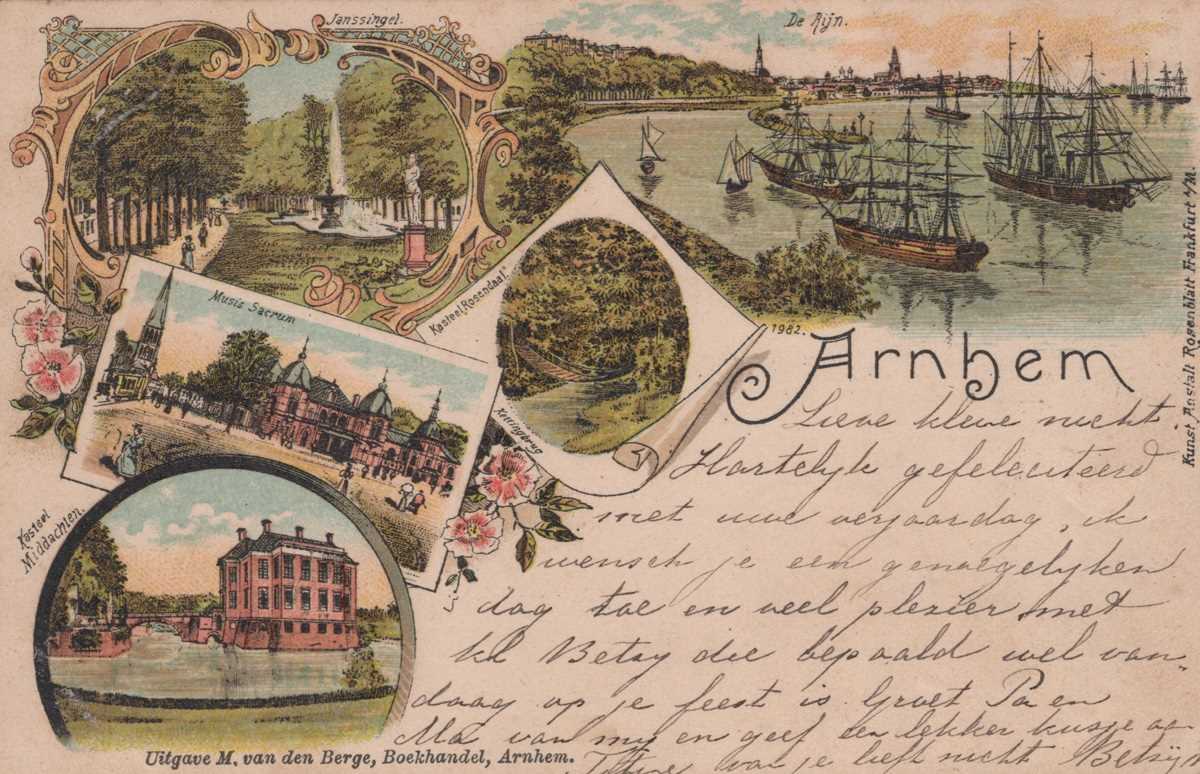 Janssingel.
De Rijn.
Musis Sacrum
Kasteel „Rosendaal".
Kettingbrug
1982.
Arnhem
Kunst Anstalt Rosenblatt Frankfurt a/M.
Kasteel
Middachten.
Lieve kleine nicht
Hartelyk gefeleciteerd
met uwe verjaardag, ik
wensch je een genoegelyken
dag toe en veel plezier met
kl Betsy die bepaald wel van-
daag op je feest is Groet Pa en
Ma van my en geef een lekker kusje aan
van je liefh nicht Betsij
Uitgave M. van den Berge, Boekhandel, Arnhem.